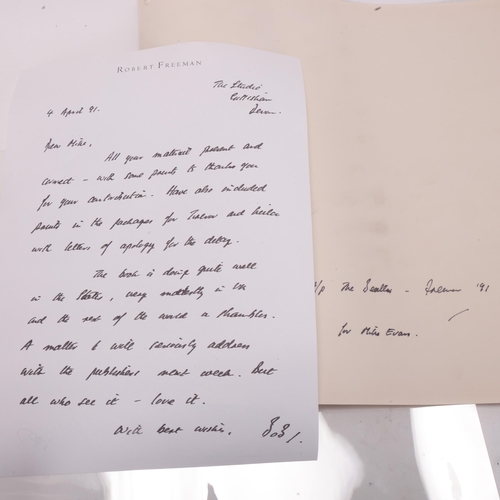 ROBERT FREEMAN
The Studio
Devon.
4 April 91.
Dear Mike,
All your material present and
correct – with some prints to thank you
for your contribution. Have also included
prints in the packages for and
with letters of apology for the delay.
The book is doing quite well
in the States, very modestly in UK
and the rest of the world a shambles.
A matter I will seriously address
with the publishers next week. But
all who see it – love it.
With best wishes,
Bob/.
The Beatles – '91
for Mike Evans.